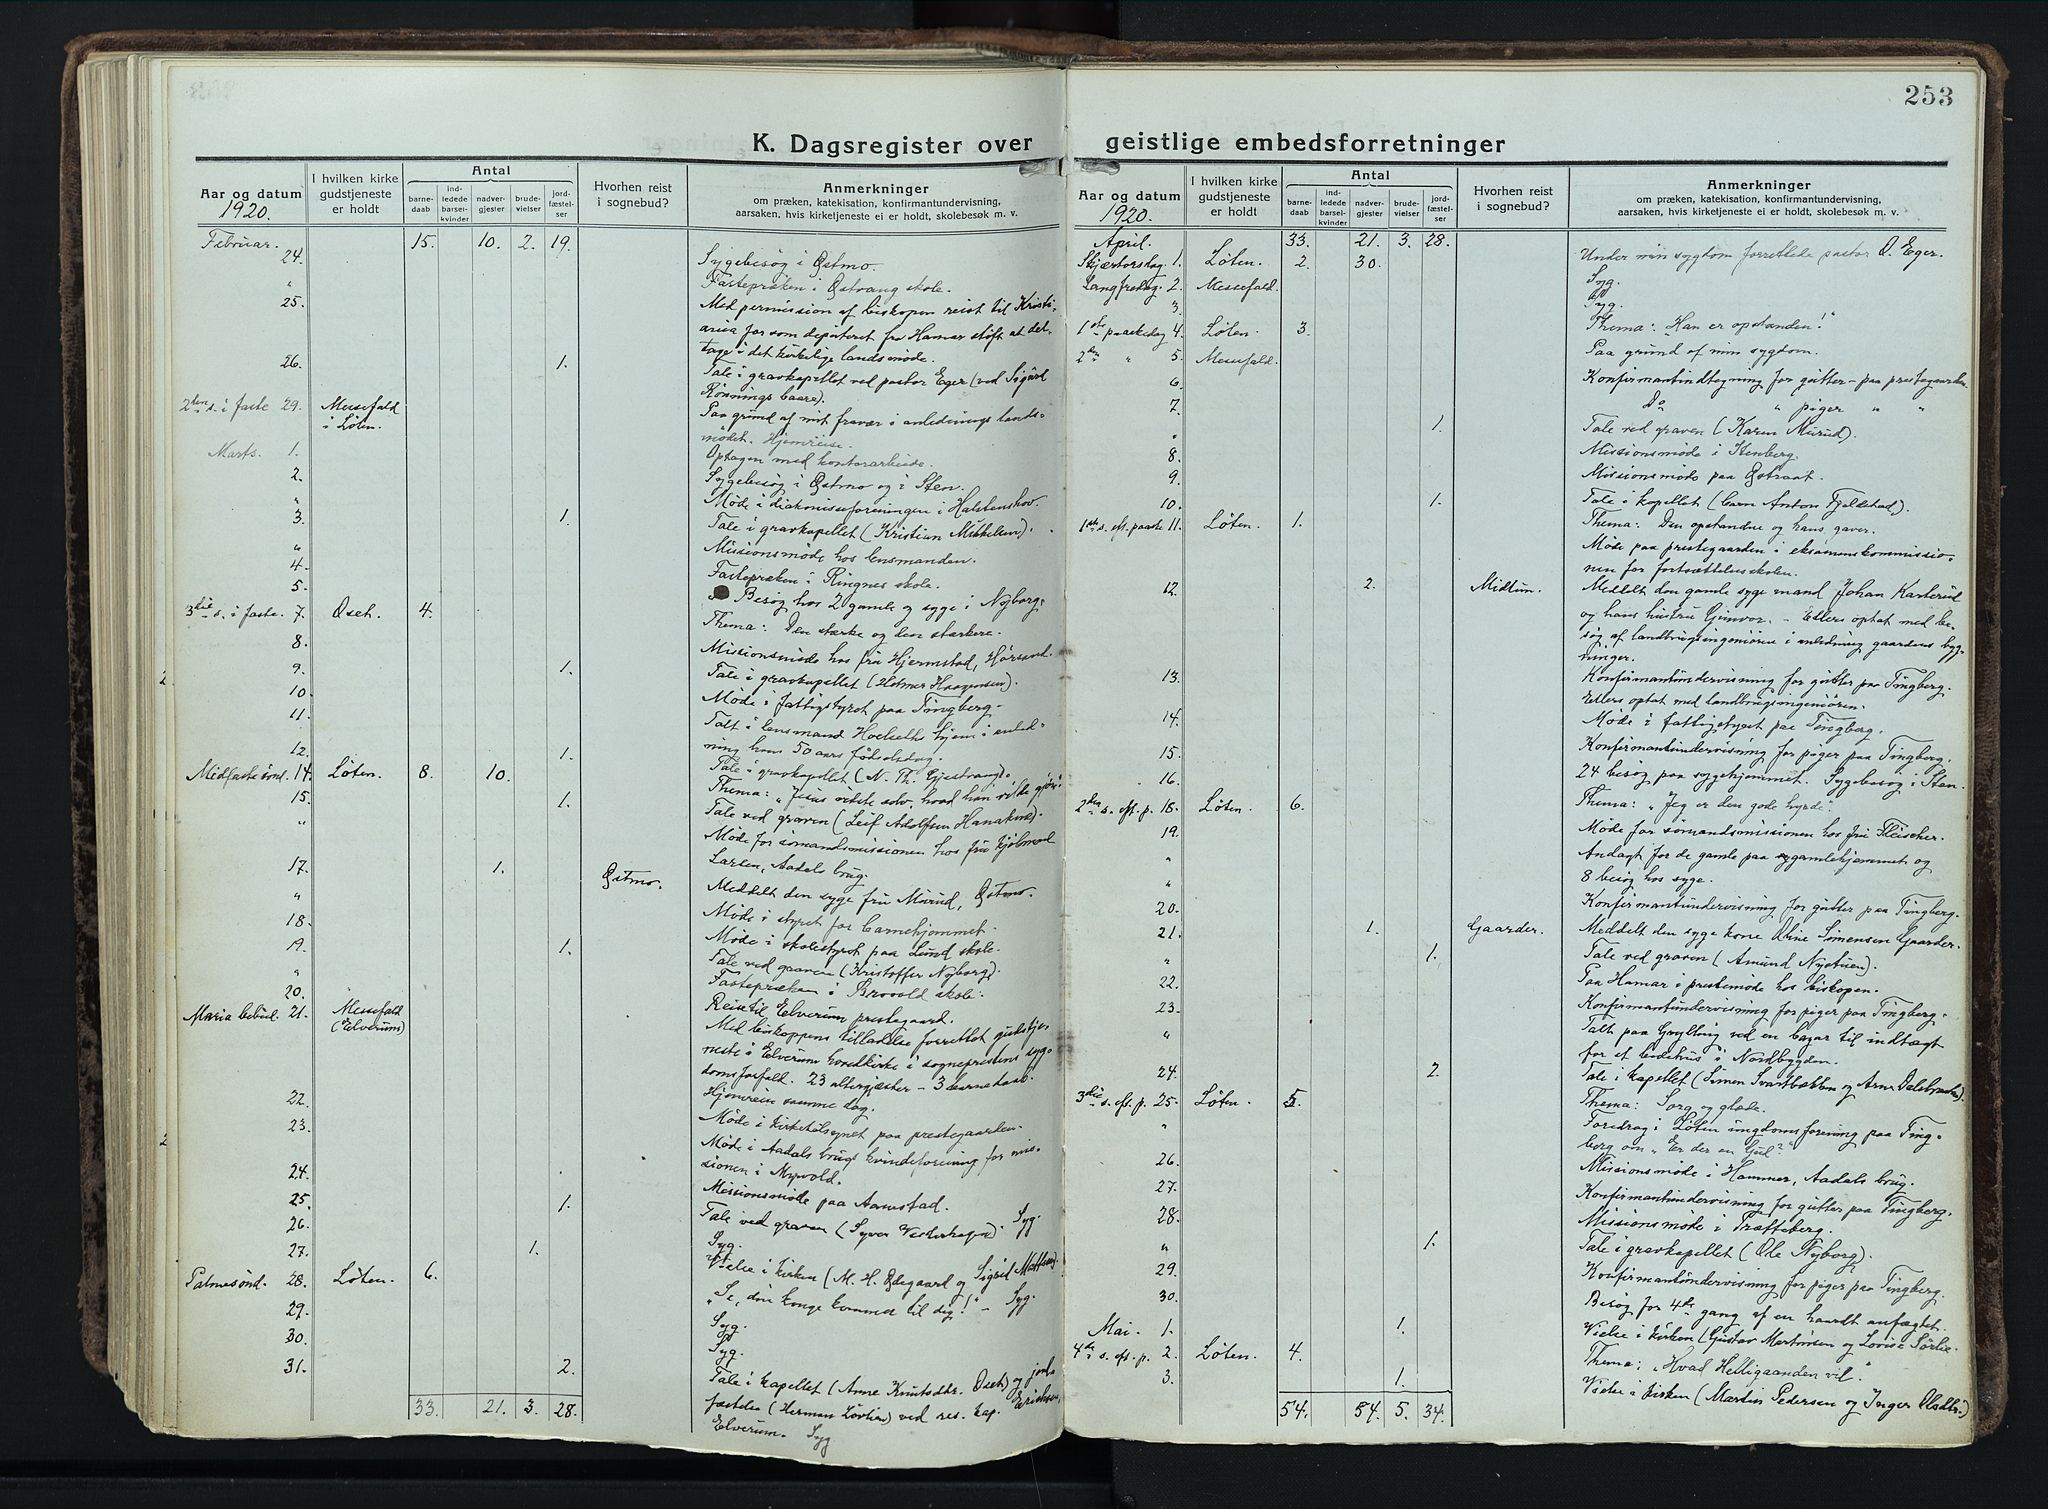 253
K. Dagsregister over geistlige embedsforretninger
Aar og datum
1920.
I hvilken kirke gudstjeneste er holdt
Antal
barnedaab
indledede barselkvinder
nadvergjester
brudevielser
jordfæstelser
Hvorhen reist i sognebud?
Anmerkninger
om præken, katekisation, konfirmantundervisning, aarsaken, hvis kirketjeneste ei er holdt, skolebesøk m. v.
Februar. 15. 10. 2. 19.
24. Sygebesøg i Østmo.
" Fastepræken i Østvang skole.
25. Med permission af biskopen reist til Kristi-
ania for som deputeret fra Hamar stift at del-
tage i det kirkelige landsmøde.
26. 1. Tale i gravkapellet ved pastor Eger (ved Sigurd
Rønnings baare).
2den s. i faste 29. Messefald i Løten. Paa grund af mit fravær i anledning lands-
mødet. Hjemreise.
Marts. 1. Optagen med kontorarbeide.
2. Sygebesøg i Østmo og i Sten.
" Møde i diakonisseforeningen i Halstenshov.
3. 1. Tale i gravkapellet (Kristian Mikkelsen).
" Missionsmøde hos lensmanden.
4. Fastepræken i Ringnes skole.
5. Besøg hos 2 gamle og syge i Nyborg.
3die s. i faste. 7. Oset. 4. Thema: Den stærke og den stærkere.
8. Missionsmøde hos fru Hjermstad, Hørsand.
9. 1. Tale i gravkapellet (Helmer Haagensen).
10. Møde i fattigstyret paa Tingberg.
11. Talt i lensmand Hoelseths hjem i anled-
ning hans 50 aars fødselsdag.
12. 1. Tale i gravkapellet (N. Th. Gjestrang).
Midfastesønd. 14. Løten. 8. 10. Thema: "Jesus vidste selv, hvad han vilde gjøre"
15. 1. Tale ved graven (Leif Adolfsen Hanakne).
" Møde for sømandsmissionen hos fru Kjølmed
Larsen, Aadals brug.
17. 1. Østmo. Meddelt den syge fru Mürud, Østmo.
" Møde i styret for barnehjemmet.
18. Møde i skolestyret paa Lund skole.
19. 1. Tale ved graven (Kristoffer Nyborg).
" Fastepræken i Brovold skole.
20. Reise til Elverum prestegaard.
Maria bebud. 21. Messefald (Elverum) Med biskoppens tilladelse forrettet gudstje-
neste i Elverum hovedkirke i sogneprestens syg-
domsforfald. 23 altergjæster - 3 barnedaab.
Hjemreise samme dag.
22. Møde i kirketilsynet paa prestegaarden.
23. Møde i Aadals brugs kvindeforening for mis-
sionen i Myrvold.
24. Missionsmøde paa Aarnstad.
25. 1. Tale ved graven (Syver Vesterhagen). Syg.
26. Syg.
27. 1. Vielse i kirken (M. H. Ødegaard og Sigrid Mattsen).
Palmesønd. 28. Løten. 6. "Se, din konge kommer til dig!" - Syg.
29. Syg.
30. Syg.
31. 2. Tale i kapellet (Anne Knutsdtr. Oset) og jord-
fæstelse (Herman Løvlien) ved res. kap. Erichsen,
Elverum. Syg
33. 21. 3. 28.
Aar og datum
1920.
I hvilken kirke gudstjeneste er holdt
Antal
barnedaab
indledede barselkvinder
nadvergjester
brudevielser
jordfæstelser
Hvorhen reist i sognebud?
Anmerkninger
om præken, katekisation, konfirmantundervisning, aarsaken, hvis kirketjeneste ei er holdt, skolebesøk m. v.
April. 33. 21. 3. 28.
Skjærtorsdag. 1. Løten. 2. 30. Under min sygdom forrettede pastor O. Eger.
Langfredag. 2. Messefald. Syg.
3. Syg.
1ste paaskedag 4. Løten. 3. Thema: Han er opstanden!"
2den " 5. Messefald. Paa grund af min sygdom.
6. Konfirmantindtagning for gutter - paa prestegaarden.
7. Do " piger " "
" 1. Tale ved graven (Karen Mürud).
8. Missionsmøde i Stenberg.
9. Missionsmøde paa Østraat.
10. 1. Tale i kapellet (barn Anton Fjeldstad).
1ste s. eft. paaske 11. Løten. 1. Thema: Den opstandne og hans gaver.
Møde paa prestegaarden i eksamenskommissio-
nen for fortsættelsesskolen.
12. 2. Midtun. Meddelt den gamle syge mand Johan Karterud
og hans hustru Gunvor. - Ellers optat med be-
søg af landbrugsingeniøren i anledning gaardens byg-
ninger.
13. Konfirmantundervisning for gutter paa Tingberg.
Ellers optat med landbrugsingeniøren.
14. Møde i fattigstyret paa Tingberg.
15. Konfirmantundervisning for piger paa Tingberg.
16. 24 besøg paa sygehjemmet. Sygebesøg i Sten.
2den s. eft. p. 18. Løten. 6. Thema: "Jeg er den gode hyrde".
19. Møde for sømandsmissionen hos fru Fleischer.
" Andagt for de gamle paa gamlehjemmet og
8 besøg hos syge.
20. Konfirmantundervisning for gutter paa Tingberg.
21. 1. Gaarder. Meddelt den syge kone Oline Sømensen Gaarder.
" 1. Tale ved graven (Amund Nystuen).
22. Paa Hamar i prestemøde hos biskopen.
23. Konfirmantundervisning for piger paa Tingberg.
" Talt paa Gylling ved en bazar til indtægt
for et bedehus i Nordbygden.
24. 2. Tale i kapellet (Simen Svartbækken og Arne Dalsbraaten).
3die s. eft. p. 25. Løten. 5. Thema: Sorg og glæde.
" Foredrag i Løten ungdomsforening paa Ting-
berg om "Er der en Gud?"
26. Missionsmøde i Hammer, Aadals brug.
27. Konfirmantundervisning for gutter paa Tingberg.
28. Missionsmøde i Træffeberg.
" 1. Tale i gravkapellet (Ole Nyborg).
29. Konfirmantundervisning for piger paa Tingberg.
30. Besøg for 4de gang af en haardt anfægtet.
Mai. 1. 1. Vielse i kirken (Gustav Mortensen og Lovise Sørlie.
4de s. eft. p. 2. Løten. 4. Thema: "Hvad Helligaanden vil".
3. 1. Vielse i kirken (Martin Pedersen og Inger Olsdtr.)
54. 54. 5. 34.